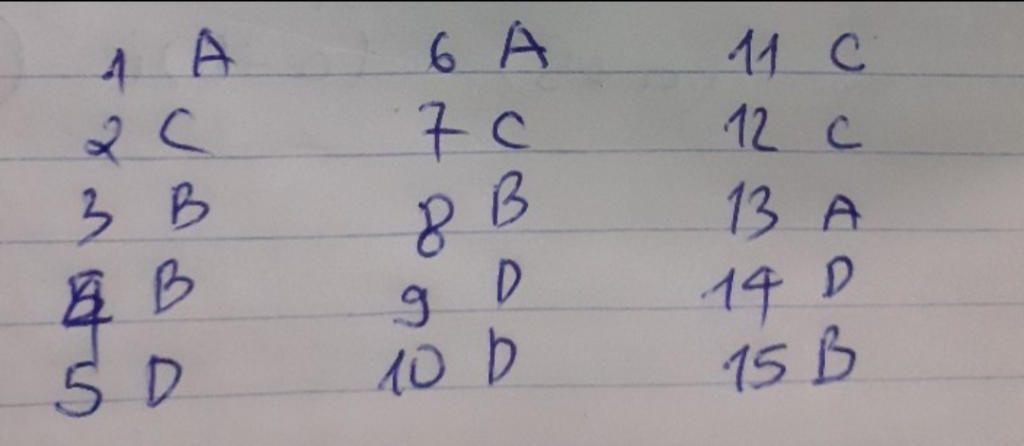 1 A 6 A 11 C
2 C 7 C 12 C
3 B 8 B 13 A
4 B 9 D 14 D
5 D 10 D 15 B